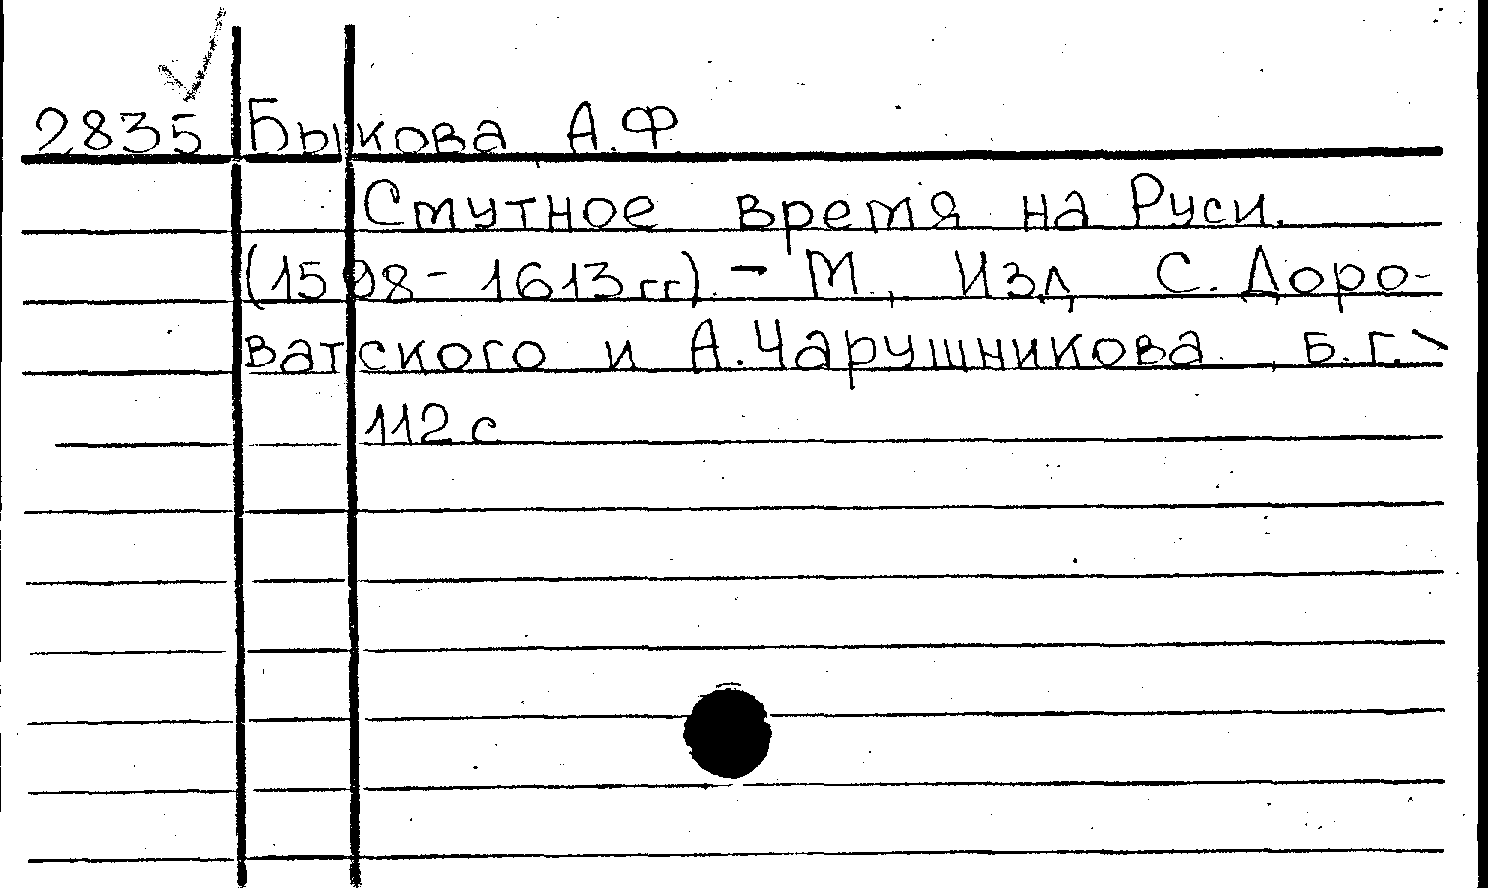 2835 Быкова А.Ф
Смутное время на Руси.
(1598- 1613 гг). - М., Изд. С. Доро-
ватского и А.Чарушникова, Б.г.
112 с